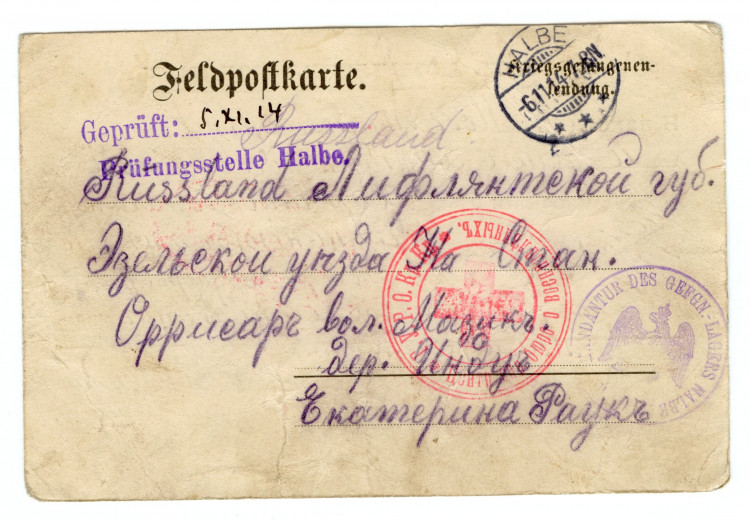 Feldpostkarte.
Kriegsgefangenen-
sendung.
HALBE
-6.11.14. 7-8N.
Geprüft: 5.XI.14
Prüfungsstelle Halbe.
Russland
Russland Лифлянтской губ.
Эзельской уѣзда На Стан.
Оррисаръ вол. Мазикъ.
дер. Индуъ
Екатерина Раукъ
KOMMANDANTUR DES GEFGN.-LAGERS HALBE